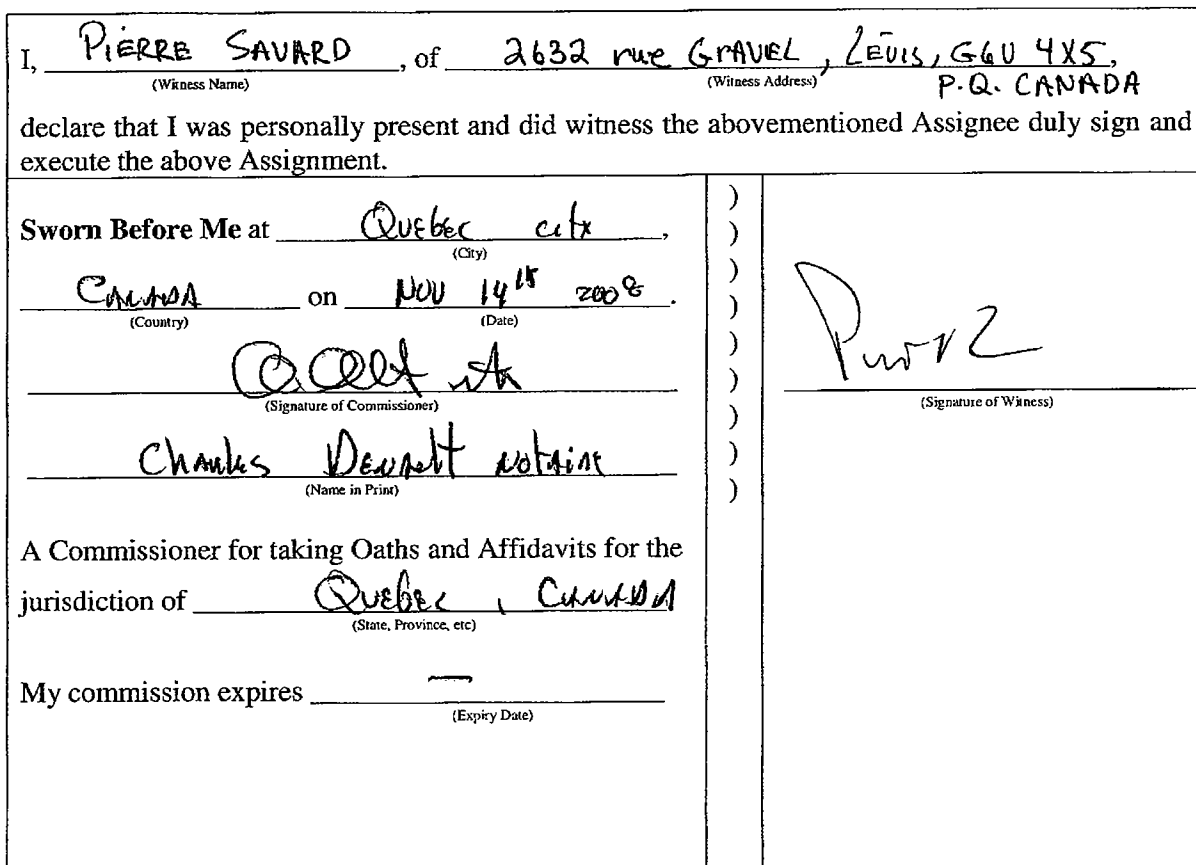 I, PIERRE SAVARD, of 2632 rue GRAVEL, LÉVIS, G6U 4X5,
(Witness Name) (Witness Address) P.Q. CANADA
declare that I was personally present and did witness the abovementioned Assignee duly sign and
execute the above Assignment.
Sworn Before Me at QUEbec city,
(City)
CANADA on NOV 14th 2008.
(Country) (Date)
(Signature of Commissioner)
Charles notaire
(Name in Print)
A Commissioner for taking Oaths and Affidavits for the
jurisdiction of QUEbec, CANADA
(State, Province, etc)
My commission expires —
(Expiry Date)
)
)
)
)
)
)
)
)
)
(Signature of Witness)